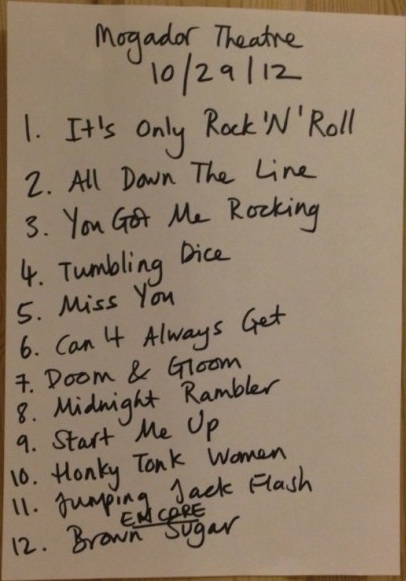 Mogador Theatre
10/29/12
1. It's Only Rock'N'Roll
2. All Down The Line
3. You Got Me Rocking
4. Tumbling Dice
5. Miss You
6. Can 4 Always Get
7. Doom & Gloom
8. Midnight Rambler
9. Start Me Up
10. Honky Tonk Women
11. Jumping Jack Flash
ENCORE
12. Brown Sugar